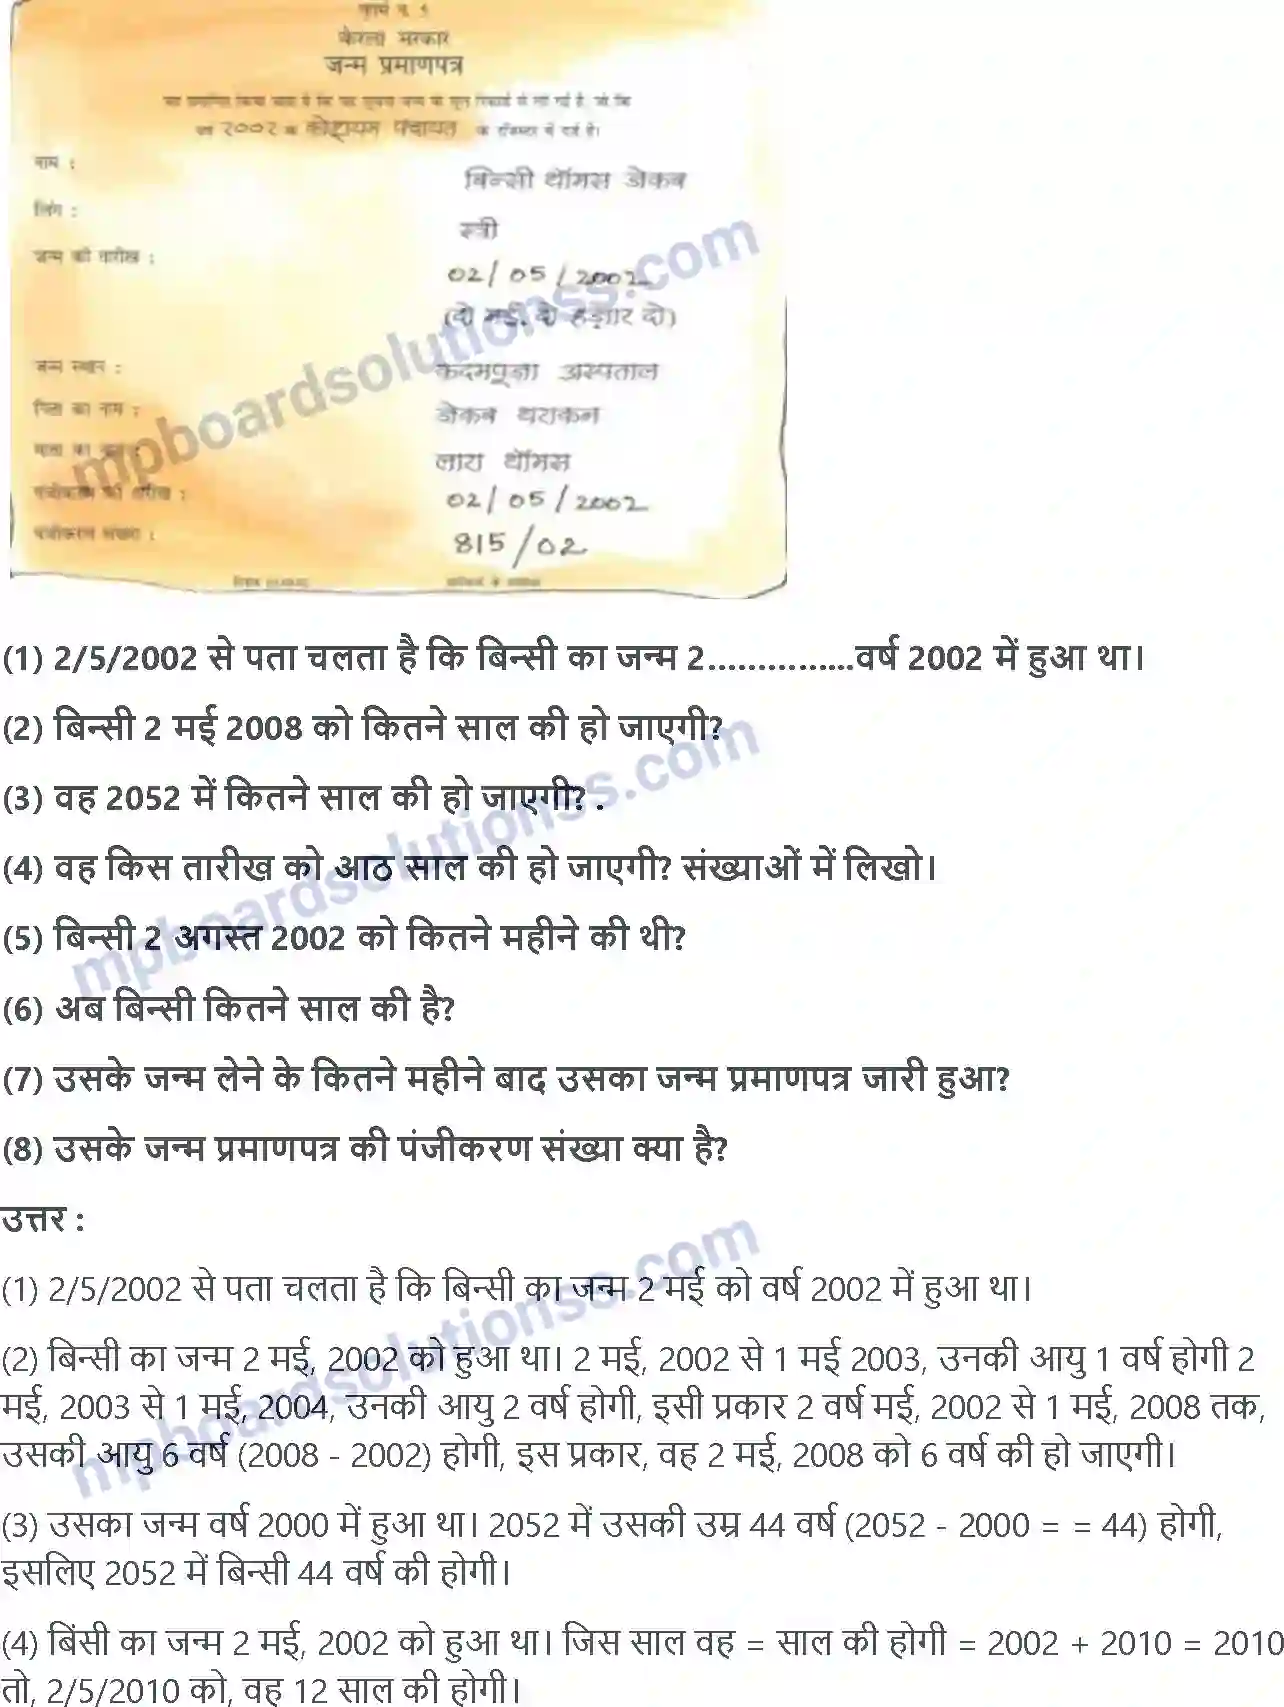 फार्म न. १
केरला सरकार
जन्म प्रमाणपत्र
यह प्रमाणित किया जाता है कि यह सूचना जन्म के मूल रिकार्ड से ली गई है, जो कि
वर्ष २००२ के कोट्टायम पंचायत के रजिस्टर में दर्ज है।
नाम : बिन्सी थॉमस जेकब
लिंग : स्त्री
जन्म की तारीख : 02/05/2002
(दो मई, दो हज़ार दो)
जन्म स्थान : कदमपूजा अस्पताल
पिता का नाम : जेकब थराकन
माता का नाम : लारा थॉमस
पंजीकरण की तारीख : 02/05/2002
पंजीकरण संख्या : 815/02
mpboardsolutionss.com
(1) 2/5/2002 से पता चलता है कि बिन्सी का जन्म 2...............वर्ष 2002 में हुआ था।
(2) बिन्सी 2 मई 2008 को कितने साल की हो जाएगी?
(3) वह 2052 में कितने साल की हो जाएगी? .
(4) वह किस तारीख को आठ साल की हो जाएगी? संख्याओं में लिखो।
(5) बिन्सी 2 अगस्त 2002 को कितने महीने की थी?
mpboardsolutionss.com
(6) अब बिन्सी कितने साल की है?
(7) उसके जन्म लेने के कितने महीने बाद उसका जन्म प्रमाणपत्र जारी हुआ?
(8) उसके जन्म प्रमाणपत्र की पंजीकरण संख्या क्या है?
उत्तर :
(1) 2/5/2002 से पता चलता है कि बिन्सी का जन्म 2 मई को वर्ष 2002 में हुआ था।
(2) बिन्सी का जन्म 2 मई, 2002 को हुआ था। 2 मई, 2002 से 1 मई 2003, उनकी आयु 1 वर्ष होगी 2
मई, 2003 से 1 मई, 2004, उनकी आयु 2 वर्ष होगी, इसी प्रकार 2 वर्ष मई, 2002 से 1 मई, 2008 तक,
उसकी आयु 6 वर्ष (2008 - 2002) होगी, इस प्रकार, वह 2 मई, 2008 को 6 वर्ष की हो जाएगी।
mpboardsolutionss.com
(3) उसका जन्म वर्ष 2000 में हुआ था। 2052 में उसकी उम्र 44 वर्ष (2052 - 2000 = = 44) होगी,
इसलिए 2052 में बिन्सी 44 वर्ष की होगी।
(4) बिंसी का जन्म 2 मई, 2002 को हुआ था। जिस साल वह = साल की होगी = 2002 + 2010 = 2010
तो, 2/5/2010 को, वह 12 साल की होगी।